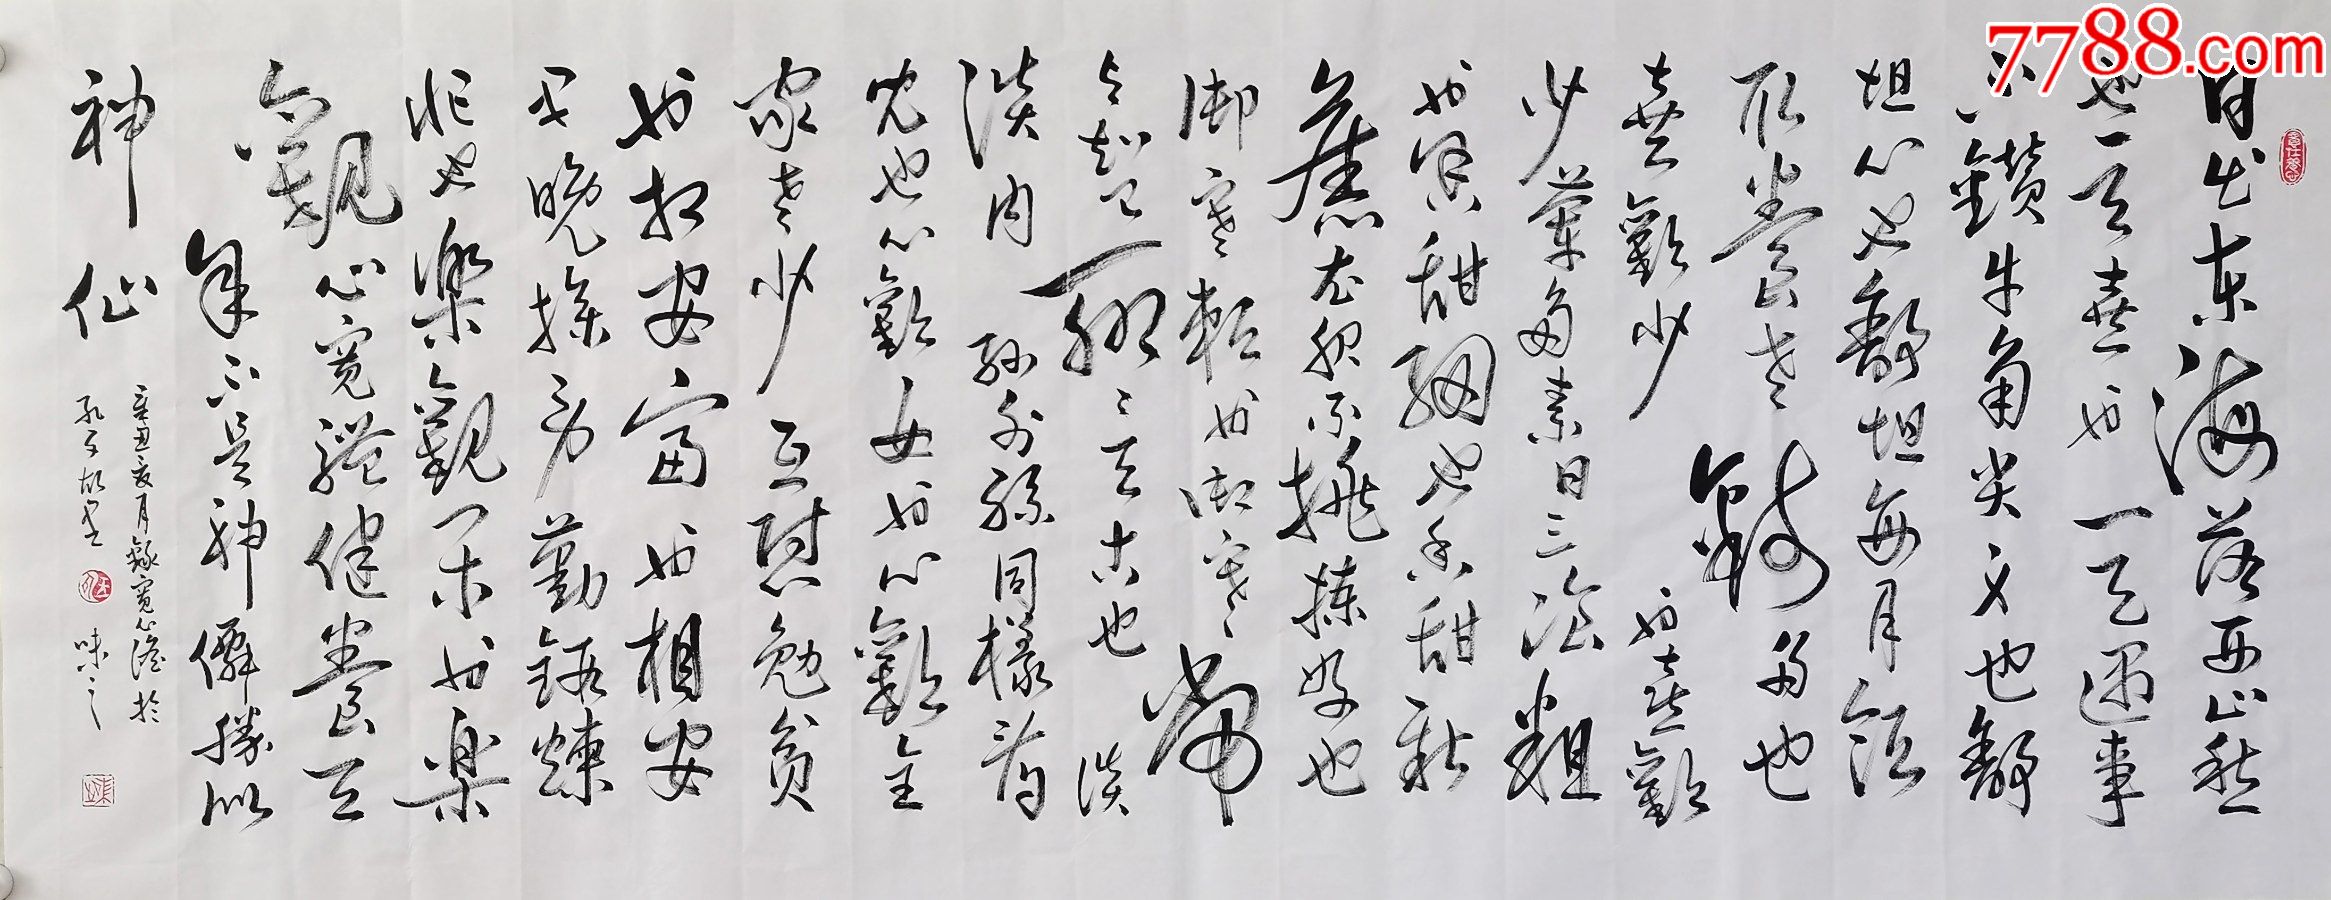 日出東海落西山愁
也一天喜也一天遇事
不鑽牛角尖人也舒
坦心也舒坦每月領
取養老錢多也
喜歡少也喜歡
少葷多素日三餐粗
也香甜細也香甜新
舊衣服不挑揀好也
御寒賴也御寒常
與知己聊〻天古也談
談内孫外孫同樣看
兒也心歡女也心歡全
家老少互慰勉貧
也相安富也相安
早晚操勞勤鍛煉
忙也樂觀閑也樂
觀心寬體健養天
年不是神僊勝似
神仙
辛丑夏月錄寬心謠於
孔子故里 味之
7788.com